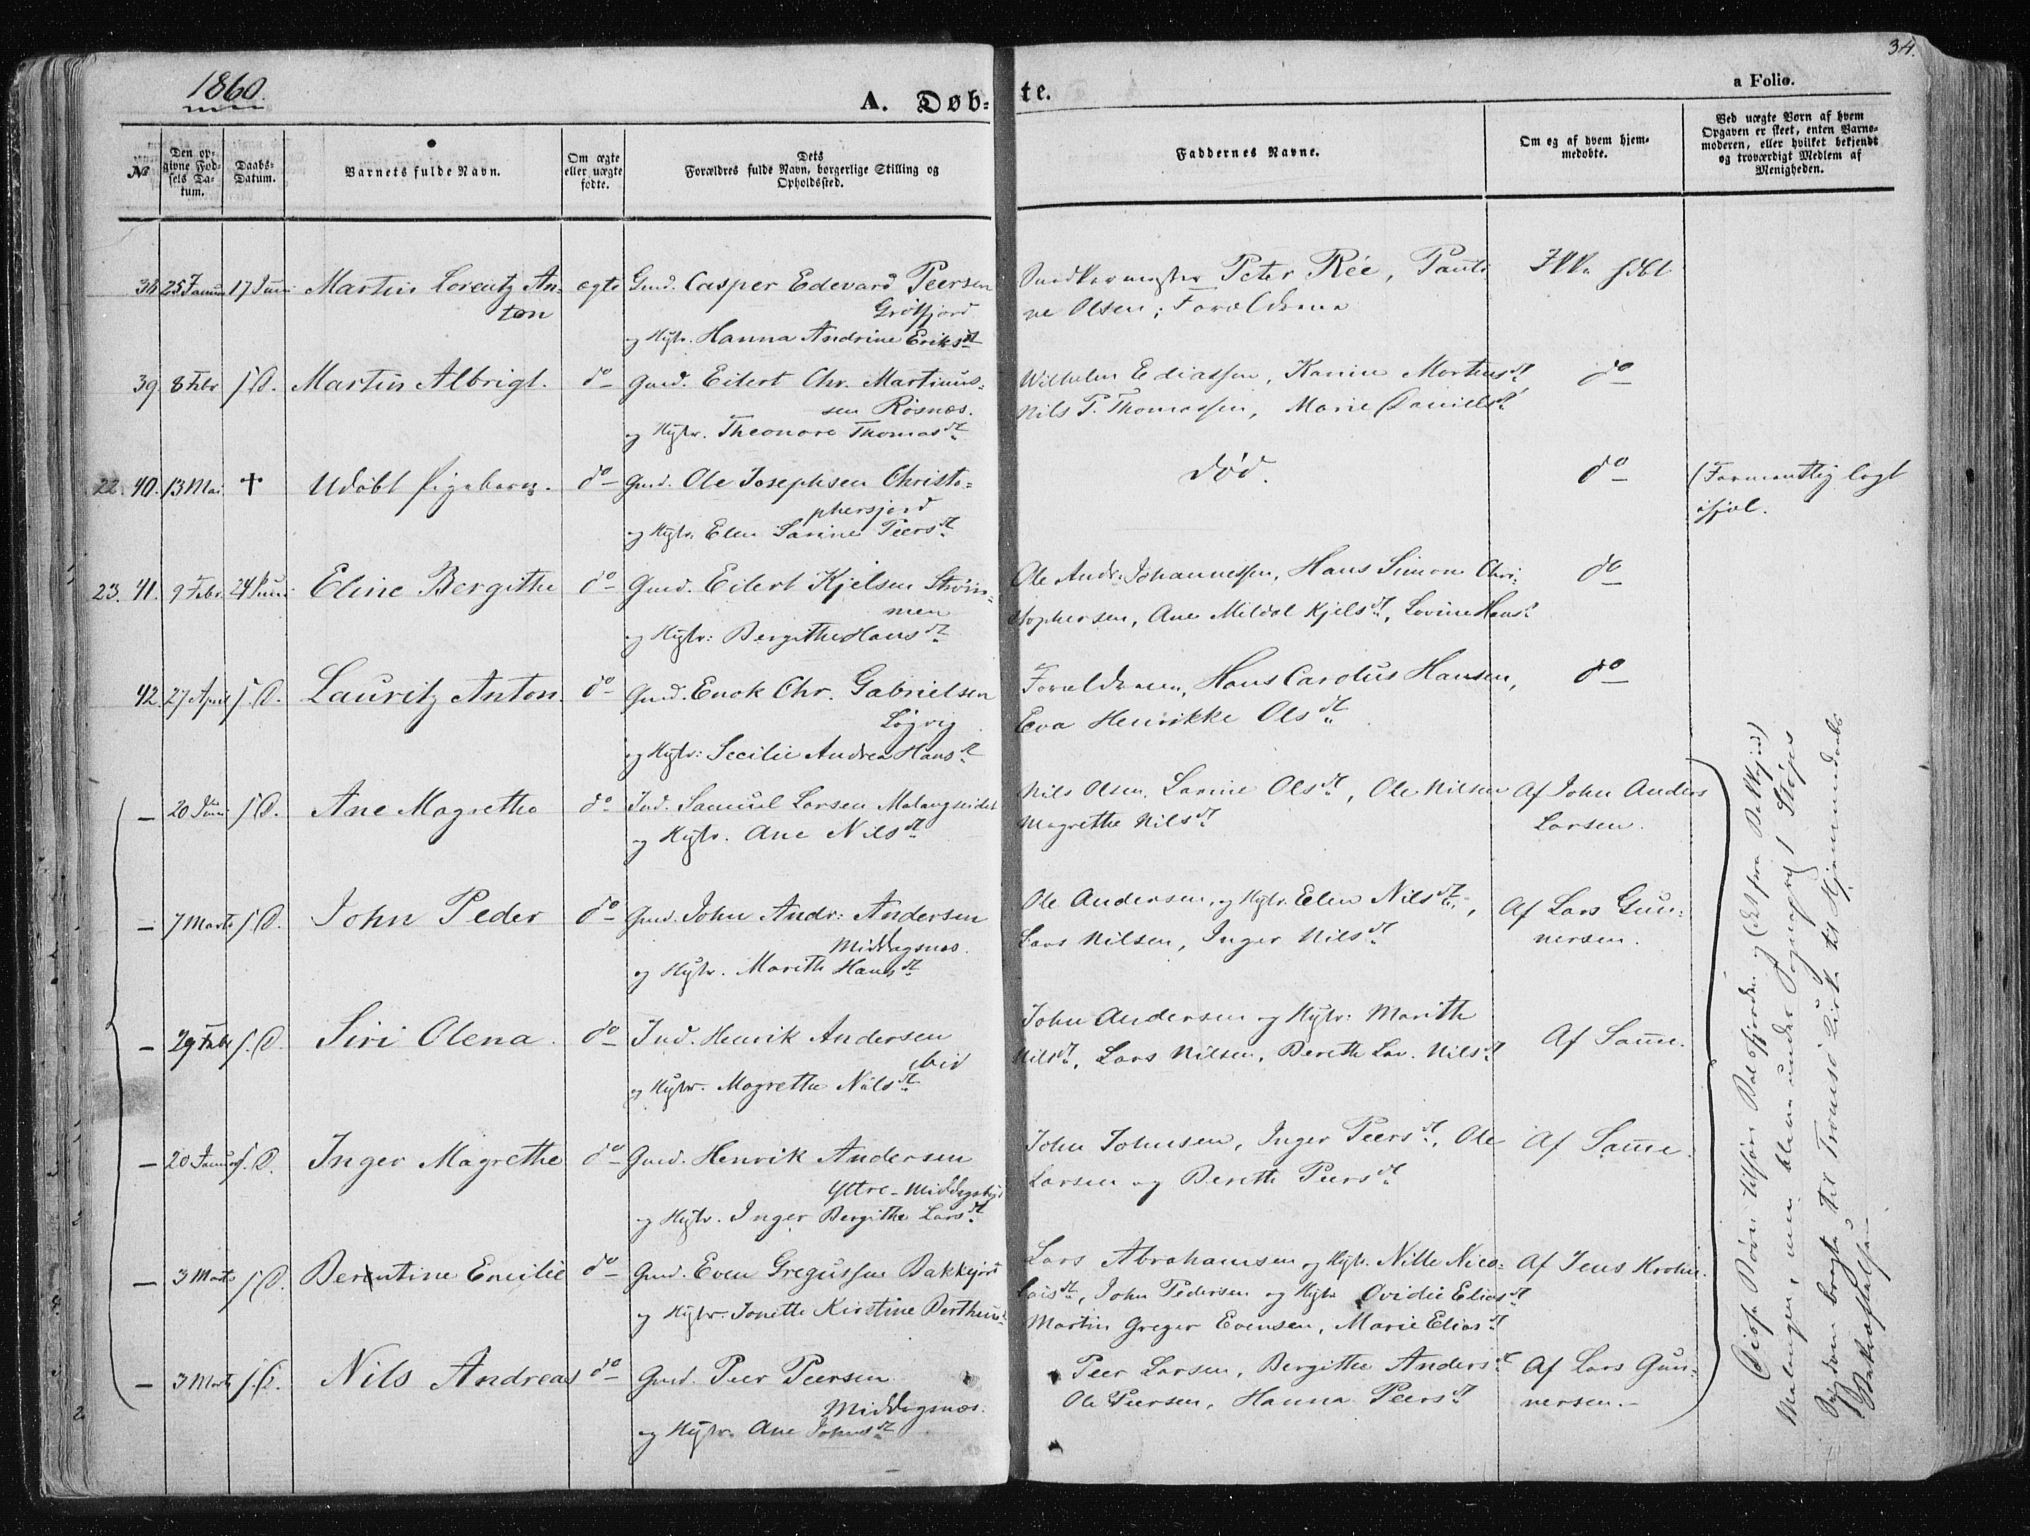 1860.
34.
A. Døb-
te.
a Folio.
No
Den op-
givne Fød-
sels Da-
tum.
Daabs-
Datum.
Barnets fulde Navn.
Om ægte
eller uægte
fødte.
Dets
Forældres fulde Navn, borgerlige Stilling og
Opholdssted.
Faddernes Navne.
Om og af hvem hjem-
medøbte.
Ved uægte Børn af hvem
Opgaven er skeet, enten Barne-
moderen, eller hvilket bekjendt
og troværdigt Medlem af
Menigheden.
38 25 Januar 17 Juni Martin Lorentz An- ægte Gmd. Casper Edevard Peersen
ton Grøtfjord
og Hstr. Hanna Andrine Eriksdt
Snedkermester Peter Rée, Pauli-
ne Olsen; Forældrene
Ikke hdbt
39. 8 Febr s. D. Martin Albrigt. do Gmd. Eilert Chr. Martinus-
sen Røsnæs.
og Hstr. Theonore Thomasdt
Wilhelm Ediassen, Karine Mortensdt,
Nils P. Thomassen, Marie Danielsdt
do
22. 40. 13 Mai † Udøbt Pigebarn. do Gmd. Ole Josephsen Christo-
phersjord
og Hstr. Elen Sarine Peersdt
død.
do
(Formentlig lagt
ihjel.
23. 41. 9 Febr. 24 Juni Eline Bergithe do Gmd. Eilert Kjelsen Strøm-
men
og Hstr: Bergithe Hansdt
Ole Andr. Johannessen, Hans Simon Chri-
stophersen, Ane Mildal Kjelsdt, Lovine Hansdt
do
42. 27 April s. D. Lauritz Anton. do Gmd. Enok Chr. Gabrielsen
Løgvig
og Hstr: Secilie Andrea Hansdt
Forældrene, Hans Carolus Hansen,
Eva Henrikke Olsdt
do
– 20 Juni s. D. Ane Magrethe do Ind. Samuel Larsen Malangseidet
og Hstr. Ane Nilsdt
Nils Olsen, Larine Olsdt, Ole Nilsen
Magrethe Nilsdt
Af John Anders
Larsen.
– 7 Marts s. D. John Peder do Gmd. John Andr: Andersen
Middagsnæs.
og Hstr. Marith Hansdt
Ole Andersen, og Hstr. Elen Nilsdt,
Lars Nilsen, Inger Nilsdt
Af Lars Gun-
nersen.
– 29 Febr s. D. Siri Olena. do Ind. Henrik Andersen
ibid
og Hstr. Magrethe Nilsdt
John Andersen og Hstr: Marith
Nilsdt, Lars Nilsen, Berethe Lar. Nilsdt
Af Same.
– 20 Januar s. D. Inger Magrethe do Gmd. Henrik Andersen
Yttre-Middagsnæs
og Hstr. Inger Bergithe Larsdt
John Johnsen, Inger Peersdt, Ole
Larsen og Berethe Peersdt
Af Same.
– 3 Marts s. D. Berentine Emilie do Gmd. Even Gregussen Bakkejord
og Hstr: Jonette Kirstine Bertheusdt
Lars Abrahamsen og Hstr. Nille Nico-
laisdt, John Pedersen og Hstr Ovidie Eliasdt
Martin Greger Evensen, Marie Eliasdt
Af Jens Krohn.
– 3 Marts s. D. Nils Andreas do Gmd. Peer Peersen
Middagsnæs.
og Hstr. Ane Johnsdt
Peer Larsen, Bergithe Andersdt
Ole Peersen, Hanna Peersdt
Af Lars Gun-
nersen.-
Disse Børn tilhøre Balsfjorden og (det fra Bakkejord)
Malangen, men bleve under Sognepræst Støps
Sygdom bragte til Tromsø Kirke til Hjemmedaabs
Bekræftelse.